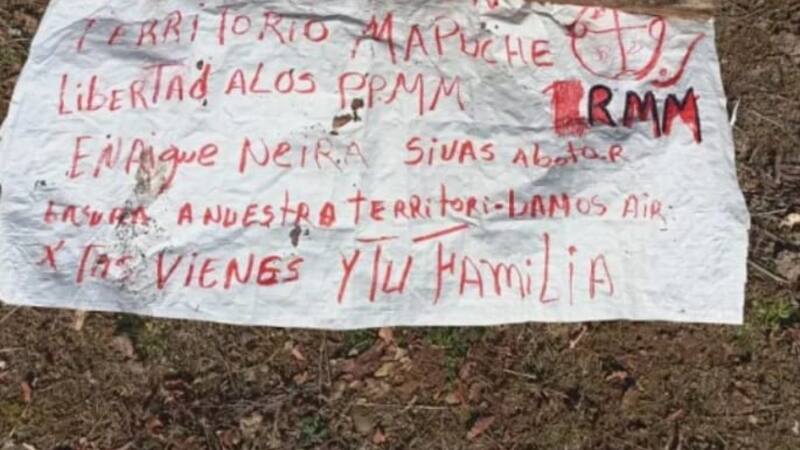 TERRITORIO MAPUCHE
LIBERTAD ALOS PPMM
RMM
ENRique NeiRA SiUAS AbotaR
bASURA A NUESTRA TERRitORi-bAMOS AIR
X TUS VIENES Y TU FAMILIA